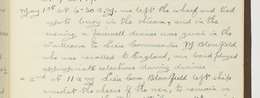 May 1st At 6-30 a.m. we left the wharf and tied
up to buoy in the stream, and in the
evening a farewell dinner was given in the
Wardroom to Lieu Commander Blomfield
who was recalled to England, our band played
appropriate selections during dinner
" 2nd At 11 a.m. Lieu Com. Blomfield left ship
amidst the cheers of the men, to remain in